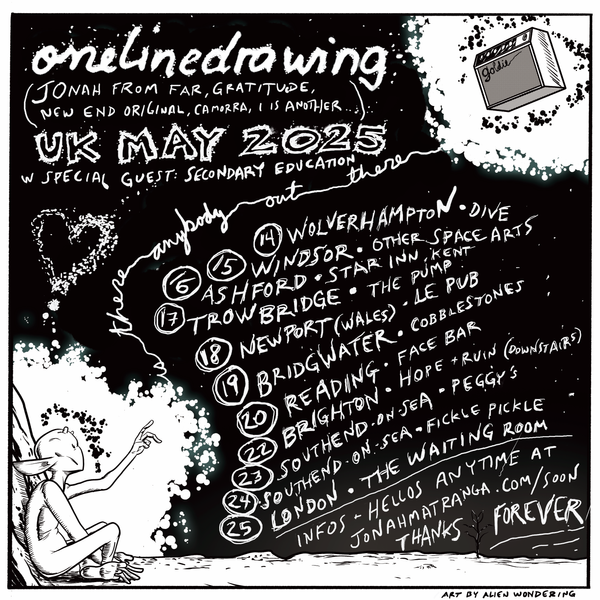 onelinedrawing
(JONAH FROM FAR, GRATITUDE,
NEW END ORIGINAL, CAMORRA, I IS ANOTHER...)
UK MAY 2025
W SPECIAL GUEST: SECONDARY EDUCATION
goldie
there anybody out there
14 WOLVERHAMPTON • DIVE
15 WINDSOR • OTHER SPACE ARTS
16 ASHFORD • STAR INN, KENT
17 TROWBRIDGE • THE PUMP
18 NEWPORT (WALES) • LE PUB
19 BRIDGWATER • COBBLESTONES
20 READING • FACE BAR
22 BRIGHTON • HOPE + RUIN (DOWNSTAIRS)
23 SOUTHEND-ON-SEA • PEGGY'S
24 SOUTHEND-ON-SEA • FICKLE PICKLE
25 LONDON • THE WAITING ROOM
INFOS - HELLOS ANYTIME AT
JONAHMATRANGA.COM/SOON
THANKS FOREVER
ART BY ALIEN WONDERING